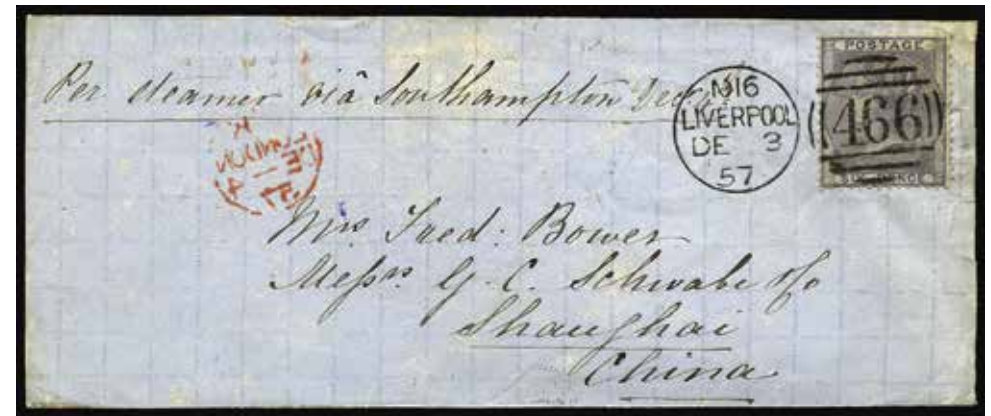 POSTAGE
Per steamer viâ Southampton
M16
LIVERPOOL
DE 3
57
466
SIX PENCE
Mrs Fred: Bower
Messrs G. C. Schwabe & Co
Shanghai
China